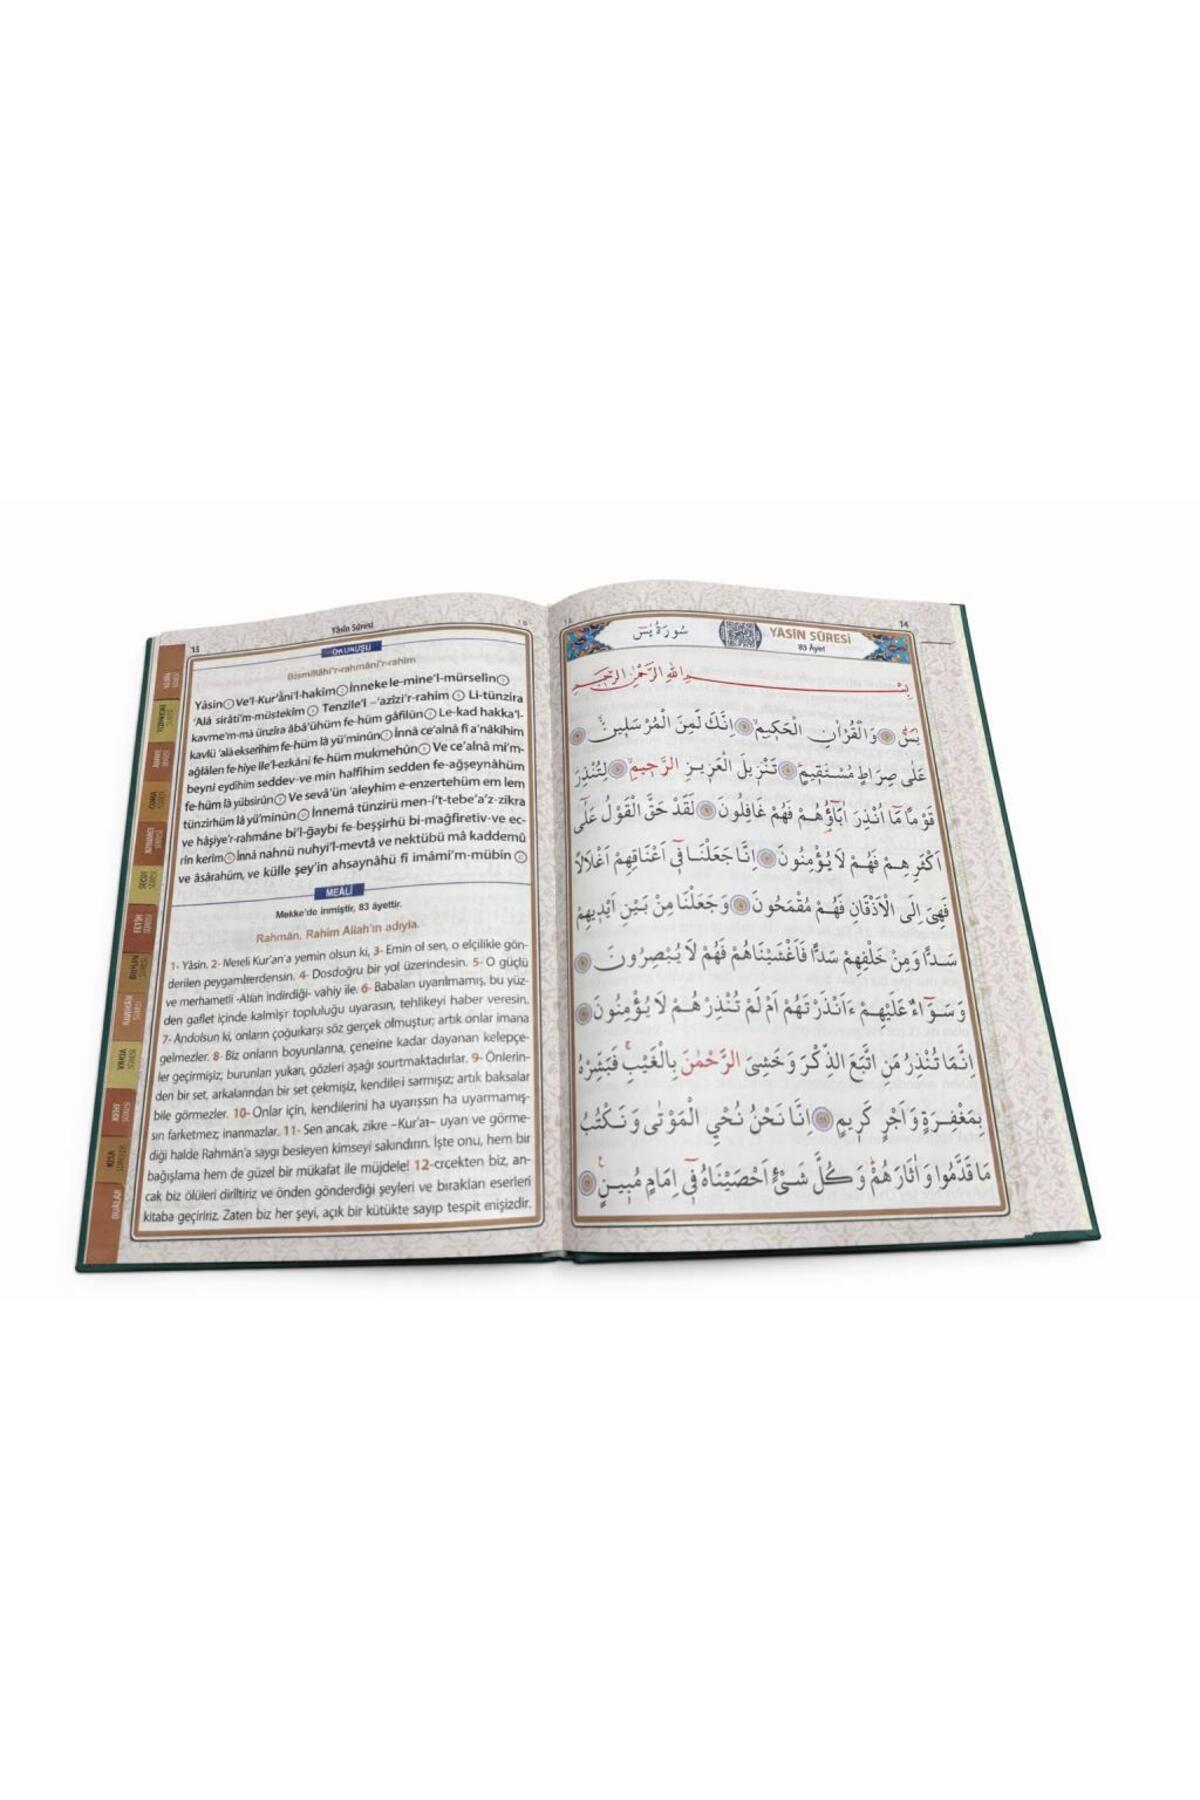 Yâsin Sûresi
13
OKUNUŞU
Bismillâhi'r-rahmâni'r-rahim
Yâsin Ve'l-Kur'âni'l-hakim İnneke le-mine'l-mürselin
'Alâ sırâti'm-müstekîm Tenzîle'l –'azîzi'r-rahim Li-tünzira
kavme'm-mâ ünzira âbâ'ühüm fe-hüm gâfilûn Le-kad hakka'l-
kavlü 'alâ ekserihim fe-hüm lâ yü'minûn İnnâ ce'alnâ fî a'nâkihim
ağlâlen fe-hiye ile'l-ezkâni fe-hüm mukmehûn Ve ce'alnâ mi'm-
beyni eydîhim seddev-ve min halfihim sedden fe-ağşeynâhüm
fe-hüm lâ yübsırûn Ve sevâ'ün 'aleyhim e-enzertehüm em lem
tünzirhüm lâ yü'minûn İnnemâ tünzirü men-i't-tebe'a'z-zikra
ve hâşiye'r-rahmâne bi'l-ğaybi fe-beşşirhü bi-mağfiretiv-ve ec-
rin kerîm İnnâ nahnü nuhyi'l-mevtâ ve nektübü mâ kaddemû
ve âsârahüm, ve külle şey'in ahsaynâhü fî imâmi'm-mübîn
MEALİ
Mekke'de inmiştir, 83 âyettir.
Rahmân, Rahim Allah'ın adıyla.
1- Yâsin, 2- Kur'an'a yemin olsun ki, 3- Emin ol sen, o elçilikle gön-
derilen peygamlerdensin. 4- Dosdoğru bir yol üzerindesin. 5- O güçlü
ve merhametli -Allah indirdiği- vahiy ile. 6- Babaları uyarılmamış, bu yüz-
den gaflet içinde kalmişr topluluğu uyarasın, tehlikeyi haber veresin.
7- Andolsun ki, onların çoğukarşı söz gerçek olmuştur; artık onlar imana
gelmezler. 8- Biz onların boyunlarına, çeneine kadar dayanan kelepçe-
ler geçirmişiz; burunları yukarı, gözleri aşağı sourtmaktadırlar. 9- Önlerin-
den bir set, arkalarından bir set çekmişiz, sarmışız; artık baksalar
bile görmezler. 10- Onlar için, kendilerini ha uyarışsın ha uyarmamış-
sın farketmez; inanmazlar. 11- Sen ancak, zikre –Kur'an– uyan ve görme-
diği halde Rahmân'a saygı besleyen kimseyi sakındırın. İşte onu, hem bir
bağışlama hem de güzel bir mükafat ile müjdele! 12- biz, an-
cak biz ölüleri diriltiriz ve önden gönderdiği şeyleri ve bırakları eserleri
kitaba geçiririz. Zaten biz her şeyi, açık bir kütükte sayıp tespit enişizdir.
14
سُورَةُ يٰسٓ
YÂSİN SÛRESİ
83 Âyet
بِسْمِ اللهِ الرَّحْمٰنِ الرَّحِيمِ
يٰسٓ وَالْقُرْاٰنِ الْحَكِيمِ اِنَّكَ لَمِنَ الْمُرْسَلِينَ
عَلٰى صِرَاطٍ مُسْتَقِيمٍ تَنْزِيلَ الْعَزِيزِ الرَّحِيمِ لِتُنْذِرَ
قَوْمًا مَٓا اُنْذِرَ اٰبَٓاؤُهُمْ فَهُمْ غَافِلُونَ لَقَدْ حَقَّ الْقَوْلُ عَلٰٓى
اَكْثَرِهِمْ فَهُمْ لَا يُؤْمِنُونَ اِنَّا جَعَلْنَا فِٓي اَعْنَاقِهِمْ اَغْلَالًا
فَهِيَ اِلَى الْاَذْقَانِ فَهُمْ مُقْمَحُونَ وَجَعَلْنَا مِنْ بَيْنِ اَيْدِيهِمْ
سَدًّا وَمِنْ خَلْفِهِمْ سَدًّا فَاَغْشَيْنَاهُمْ فَهُمْ لَا يُبْصِرُونَ
وَسَوَٓاءٌ عَلَيْهِمْ ءَاَنْذَرْتَهُمْ اَمْ لَمْ تُنْذِرْهُمْ لَا يُؤْمِنُونَ
اِنَّمَا تُنْذِرُ مَنِ اتَّبَعَ الذِّكْرَ وَخَشِيَ الرَّحْمٰنَ بِالْغَيْبِ فَبَشِّرْهُ
بِمَغْفِرَةٍ وَاَجْرٍ كَرِيمٍ اِنَّا نَحْنُ نُحْيِ الْمَوْتٰى وَنَكْتُبُ
مَا قَدَّمُوا وَاٰثَارَهُمْ وَكُلَّ شَيْءٍ اَحْصَيْنَاهُ فِٓي اِمَامٍ مُبِينٍ